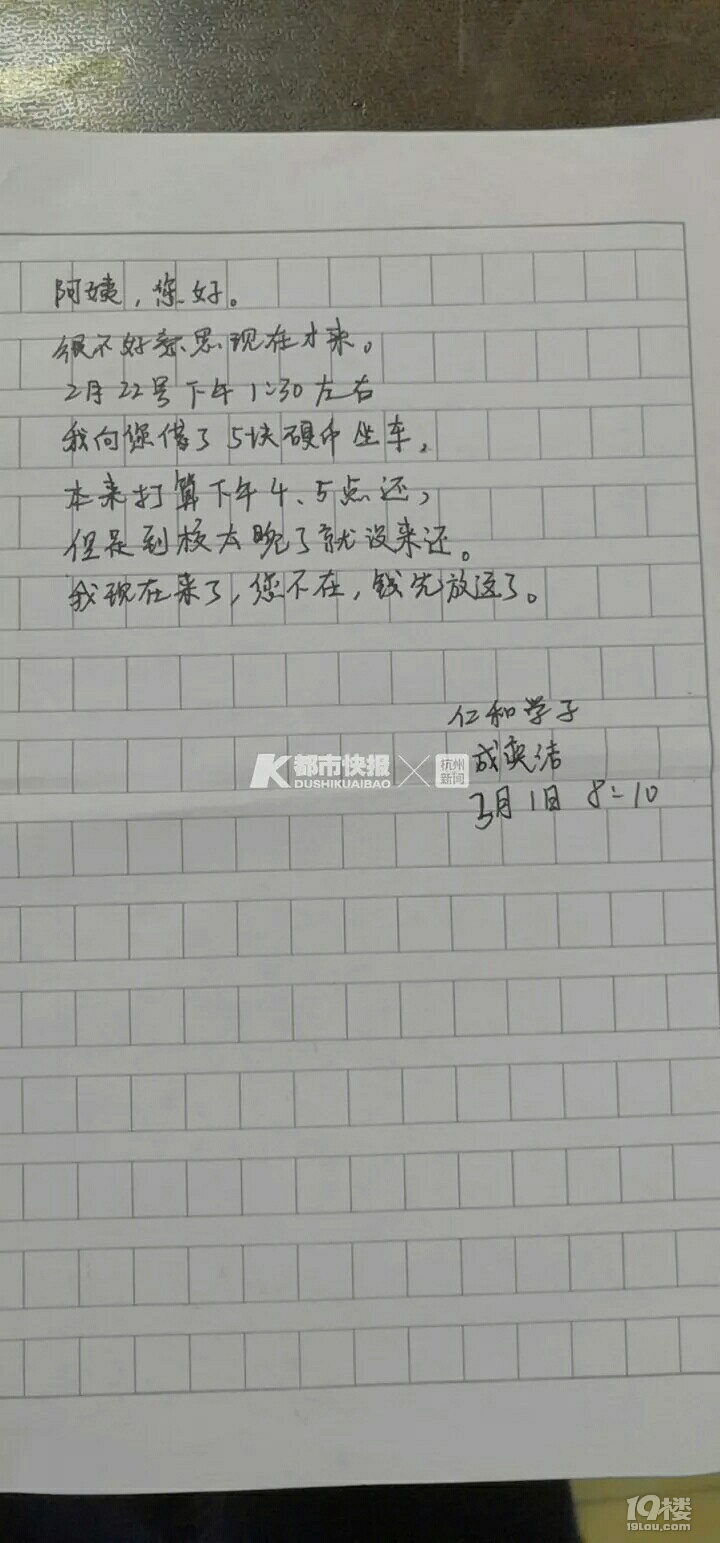 阿姨，您好。
很不好意思现在才来。
2月22号下午1:30左右
我向您借了5块硬币坐车，
本来打算下午4、5点还，
但是到校太晚了就没来还。
我现在来了，您不在，钱先放这了。
仁和学子
成奕洁
3月1日 8:10
K都市快报 × 杭州新闻
DUSHIKUAIBAO
19楼
19lou.com